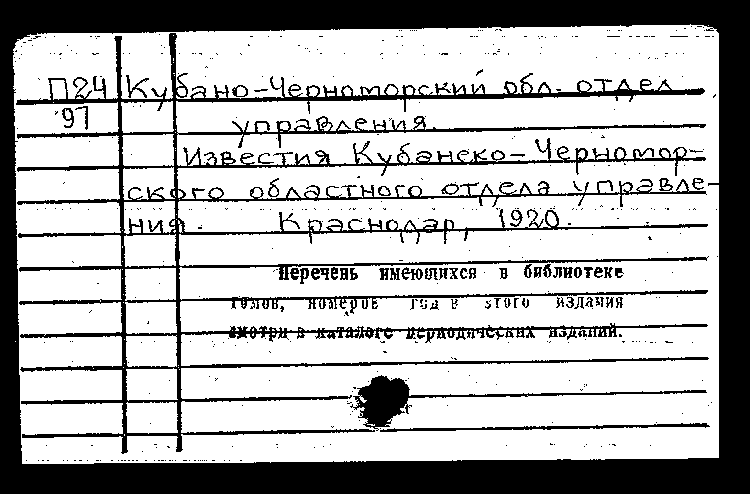 П24 Кубано-Черноморский обл. отдел
97 управления.
Известия Кубанско-Черномор-
ского областного отдела управле-
ния. Краснодар, 1920.
Перечень имеющихся в библиотеке
томов, номеров год в этого издания
смотри в каталоге периодических изданий.